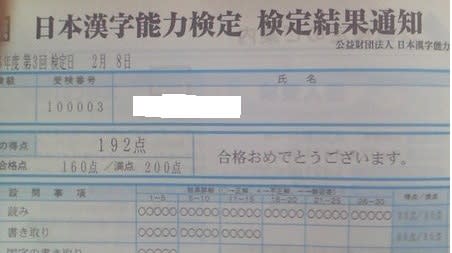 日本漢字能力検定 検定結果通知
公益財団法人 日本漢字能力
年度 第3回 検定日 2月 8日
受検番号 氏名
100003
の得点 192点
合格点 160点／満点 200点
合格おめでとうございます。
設問事項
1～5 6～10 11～15 16～20 21～25 26～30
読み ○○○○○ ○○○○○ ○○○○○ ○○○○○ ○○○○○ ○○○○○
書き取り ○○○○○ ○○○○○ ○○○○○